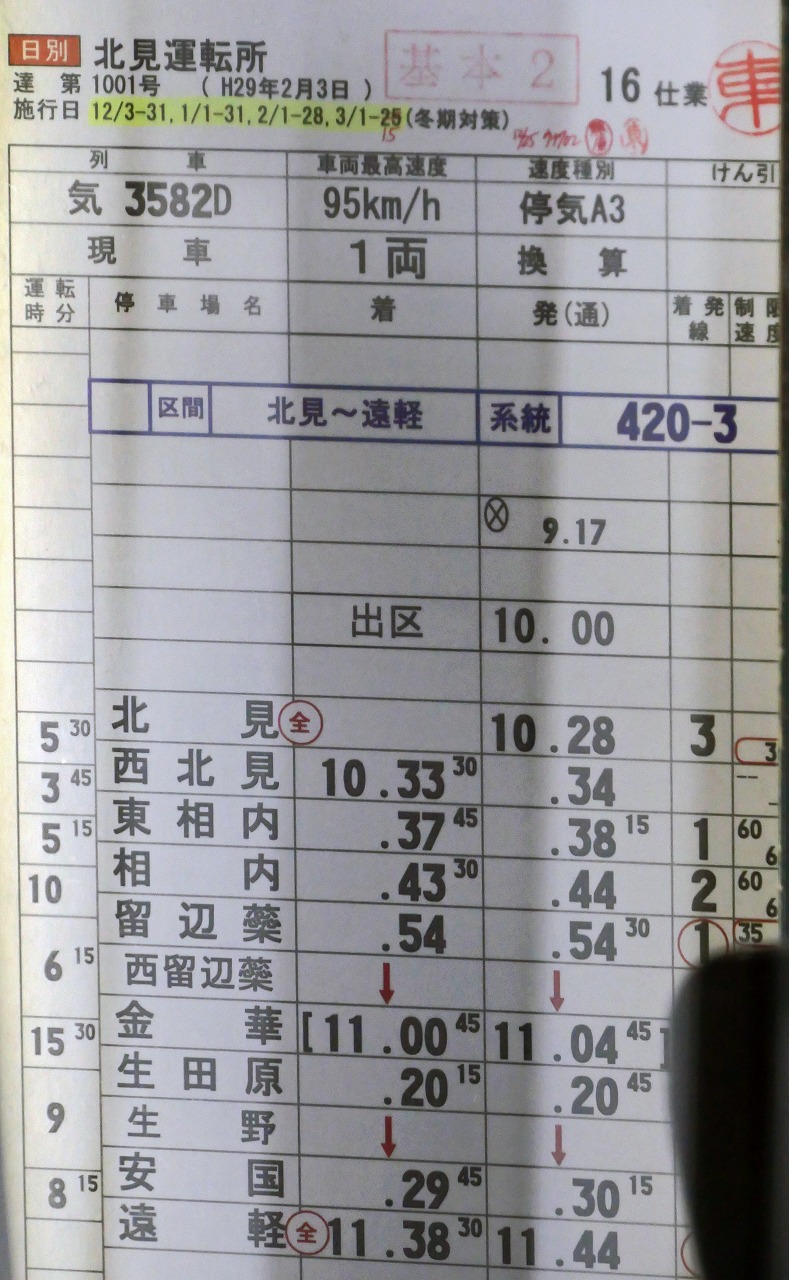 日別 北見運転所 基本2 16仕業
達 第1001号 (H29年2月3日)
施行日 12/3-31, 1/1-31, 2/1-28, 3/1-25(冬期対策)
15
列車 車両最高速度 速度種別 けん引
気 3582D 95km/h 停気A3
現車 1両 換算
運転時分 停車場名 着 発(通) 着発線 制限速度
区間 北見~遠軽 系統 420-3
⊗ 9.17
出区 10.00
北見 全 10.28 3 3
5 30
西北見 10.33 30 .34 --
3 45
東相内 .37 45 .38 15 1 60 6
5 15
相内 .43 30 .44 2 60 6
10
留辺蘂 .54 .54 30 1 35
西留辺蘂 ↓ ↓
6 15
金華 [11.00 45 11.04 45]
15 30
生田原 .20 15 .20 45
生野 ↓ ↓
9
安国 .29 45 .30 15
8 15
遠軽 全 11.38 30 11.44